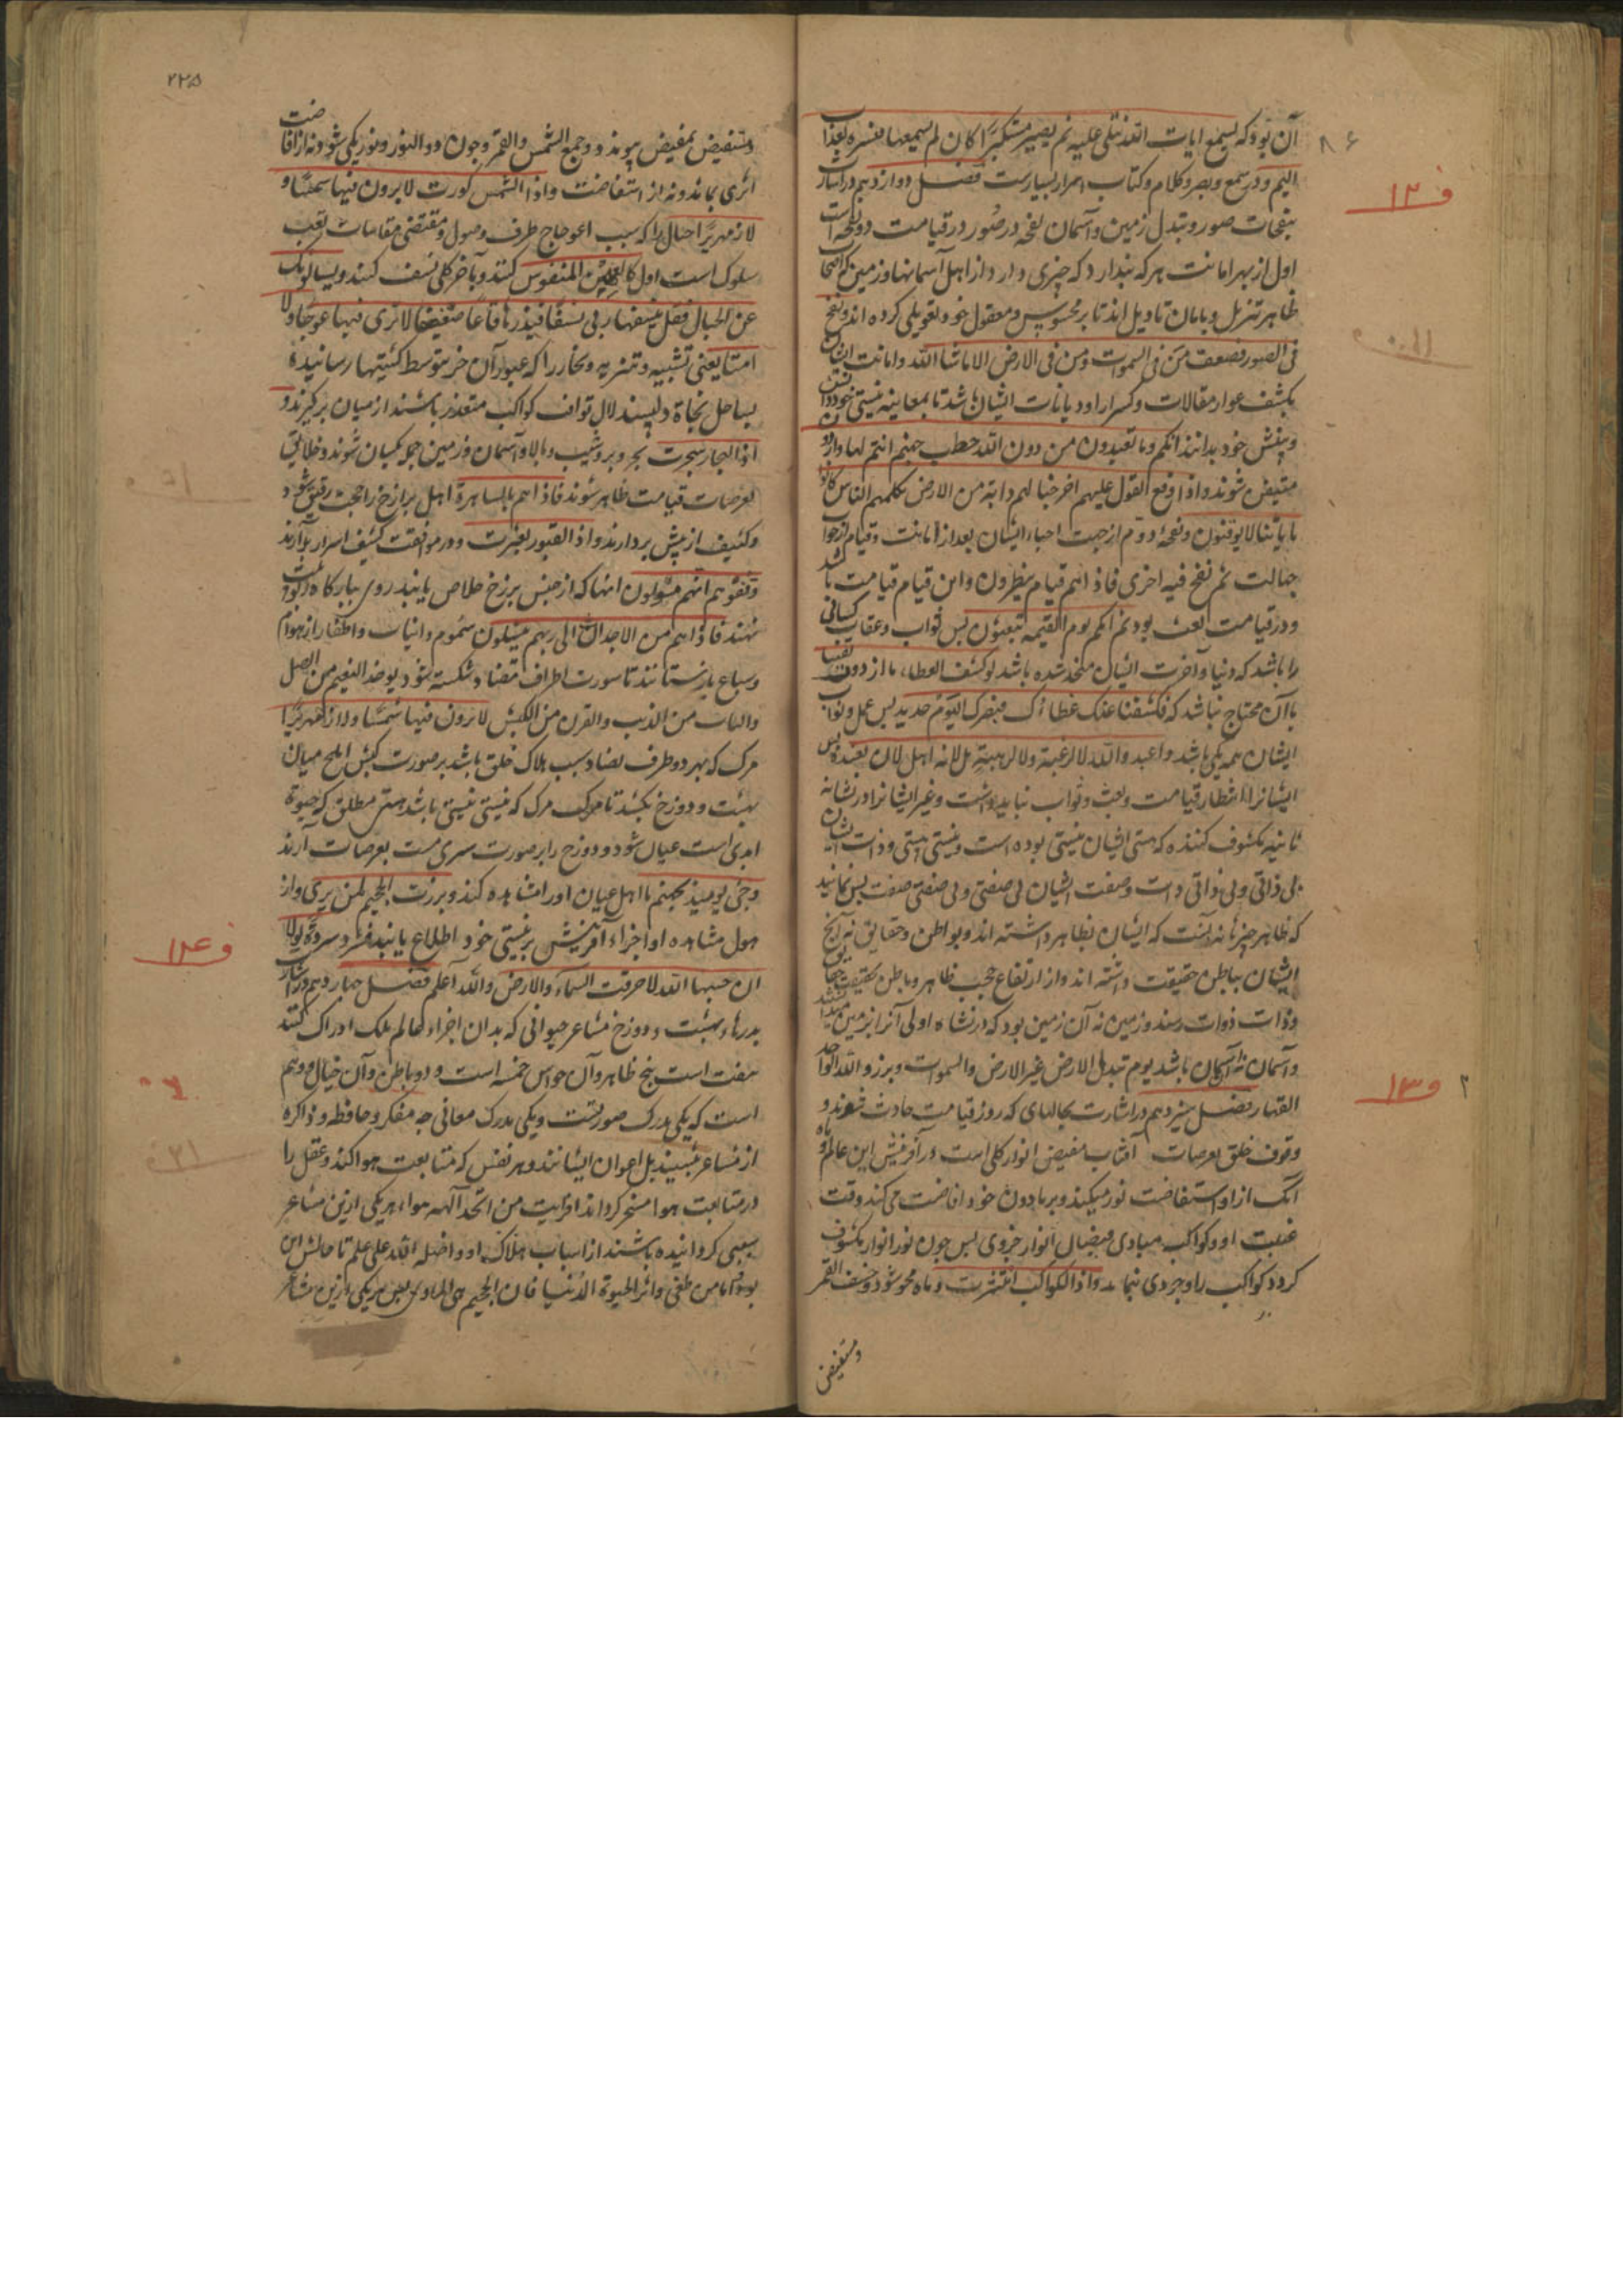 آن بود که یسمع ایات الله تتلی علیه ثم یصیر مستکبرا کان لم یسمعها فبشره بعذاب
الیم و در سمع و بصر و کلام و کتاب اسرار بسیارست فصل دوازدهم در اشارت
بنفخات صور و تبدل زمین و آسمان نفخه در صور در قیامت دو نفخه است
اول از بهر اماتت هر که پندارد که چیزی دارد از اهل آسمانها و زمین کم اصحاب
ظاهر تنزیل و بامان تاویل اند تا بر محسوس و معقول خود تعویلی کرده اند و نفخ
فی الصور فصعق من فی السموات و من فی الارض الا ماشا الله و اماتت ایشان
بکشف عوار مقالات و کسر او دیانات ایشان باشد تا بمعاینه نیستی خود و آفت
و بینش خود بدانند انکم و ما تعبدون من دون الله حطب جهنم انتم لها واردون
شوند و اذا وقع القول علیهم اخرجنا لهم دابة من الارض تکلمهم الناس کانوا
بایاتنا لا یوقنون و نفخه دوم از جهت احیاء ایشان بعد از اماتت و قیام از خواب
جهالت ثم نفخ فیه اخری فاذا هم قیام ینظرون و این قیام قیامت باشد
و در قیامت بعث بود ثم انکم یوم القیمه تبعثون پس ثواب و عقاب کسانی
را باشد که دنیا و آخرت ایشان متحد شده باشد لو کشف الغطاء ما ازددت یقینا
بآن محتاج نباشد که فکشفنا عنک غطاءک فبصرک الیوم حدید پس عمل و ثواب
ایشان همه یکی باشد و اعبد و الله لا لرغبة و لا لرهبة بل لانه اهل لان یعبد پس
ایشانرا انتظار قیامت و بعث و ثواب نباید داشت و غیر ایشانرا در نشاة
ثانیه مکشوف کننده که هستی ایشان نیستی بوده است و نیستی هستی و ذات ایشان
بی ذاتی و بی ذاتی ذات و صفت ایشان بی صفتی و بی صفتی صفت پس نمانید
که ظاهر چیزها نه آنست که ایشان بظاهر داشته اند و بواطن و حقایق نه آنچ
ایشان بباطن حقیقت داشته اند و از ارتفاع حجب ظاهر و باطن بحقیقت حقایق
و ذات ذوات رسند و زمین نه آن زمین بود که در نشاه اولی آنرا زمین میدانستند
و آسمان نه آسمان باشد یوم تبدل الارض غیر الارض والسموات و برزو الله الواحد
القهار فصل سیزدهم در اشارت بحالهای که روز قیامت حادث شوند و
وقوف خلق بعرصات آفتاب مفیض انوار کلی است در آفرینش این عالم و ماه
آنک از او استفاضت نور میکند و بر مادون خود افاضت می کند وقت
غیبت او و کواکب مبادی فیضان انوار جزوی پس چون نور انوار مکشوف
گردد کواکب را وجودی نماند و اذا الکواکب انتثرت و ماه محو شود و خسف القمر
و مستفیض
۸۶
ف ۱۲
ف ۱۳
۲۲۵
و مستفیض بمفیض پیوندد و جمع الشمس والقمر و چون دو النور و نور یکی شود نه از افاضت
اثری بماند و نه از استفاضت و اذا الشمس کورت لا یرون فیها شمسا و
لا زمهریرا جبال را که سبب اعوجاج طرق وصول و مقتضی مقامات تعب
سلوک است اول کالعهن المنفوش کنند و بآخر کلی نسف کنند و یسالونک
عن الجبال فقل ینسفها ربی نسفا فیذرها قاعا صفصفا لا تری فیها عوجا و لا
امتا یعنی تشبیه و تنزیه و بحار را که عبور آن جز بتوسط کشتیها رسانیده
بساحل نجاة و دلیل توان کواکب متعذر باشند از میان برگیرند و
اذا البحار سجرت بحر و بر و شیب و بالا و آسمان و زمین جمله یکسان شوند و خلایق
بعرصات قیامت ظاهر شوند فاذا هم بالساهرة اهل برزخ را حجب رقیق شود و
و کثیف از پیش بردارند و اذا القبور بعثرت و در موافقت کشف اسرار برآرند
وقفوهم انهم مسولون انها که از حبس برزخ خلاص یابند روی ببارکاه ربوبیت
نهند فاذا هم من الاجداث الی ربهم ینسلون سموم و انیاب و اظفار از هوام
و سباع بازستانند تا سورت اطراف متضاد شکسته شود یوخذ السم من الصل
والناب من الذیب والقرن من الکبش لا یرون فیها شمسا و لا زمهریرا
مرک که بهر دو طرف تضاد سبب هلاک خلق باشد بر صورت کبش املح میان
بهشت و دوزخ بکشند تا مرک مرک که نیستی نیستی باشد هستی مطلق که حیوة
ابدی است عیان شود و دوزخ را بر صورت بعرصات آرند
و جئ یومیذ بجهنم تا اهل عیان او را مشاهده کنند و برزت الجحیم لمن یری و از
هول مشاهده او اجزاء آفرینش بر نیستی خود اطلاع یابند فشردت شردة لولا
ان حبسها الله لاحرقت السماء والارض والله اعلم فصل چهاردهم در اشارت
بدرهاء بهشت و دوزخ مشاعر حیوانی که بدان اجزاء عالم ملک ادراک کنند
هفت است پنج ظاهر و آن حواس خمسه است و دو باطن و آن خیال و وهم
است که یکی مدرک صورتست و یکی مدرک معانی چه مفکر و حافظه و ذاکره
از مشاعر نیستند بل اعوان ایشانند و هر نفس که متابعت هوا کند و عقل را
در متابعت هوا مسخر کرداند افرایت من اتخذ الهه هواه هر یکی ازین مشاعر
سببی کردانیده باشند از اسباب هلاک او و اضله الله علی علم تا حالش این
بود فاما من طغی و اثر الحیوة الدنیا فان الجحیم هی الماوی پس هر یکی ازین مشاعر
ف ۱۴